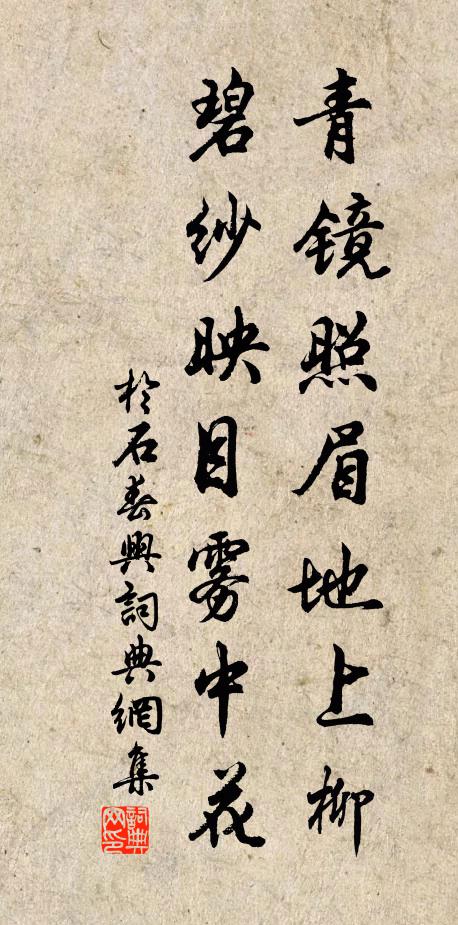 青镜照眉地上柳
碧纱映目雾中花
於石春興詞典網集
詞典网印